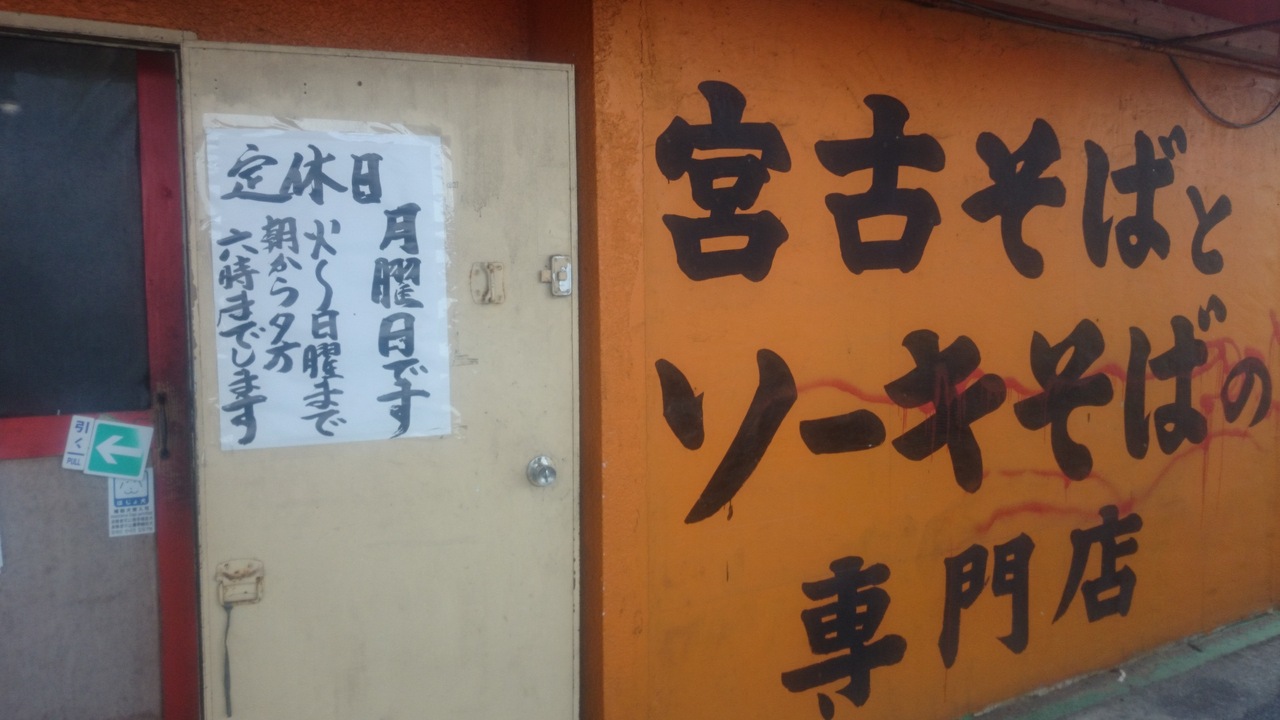 定休日
月曜日です
火～日曜まで
朝から夕方
六時までします
引く
PULL
ほじょ犬
宮古そばと
ソーキそばの
専門店